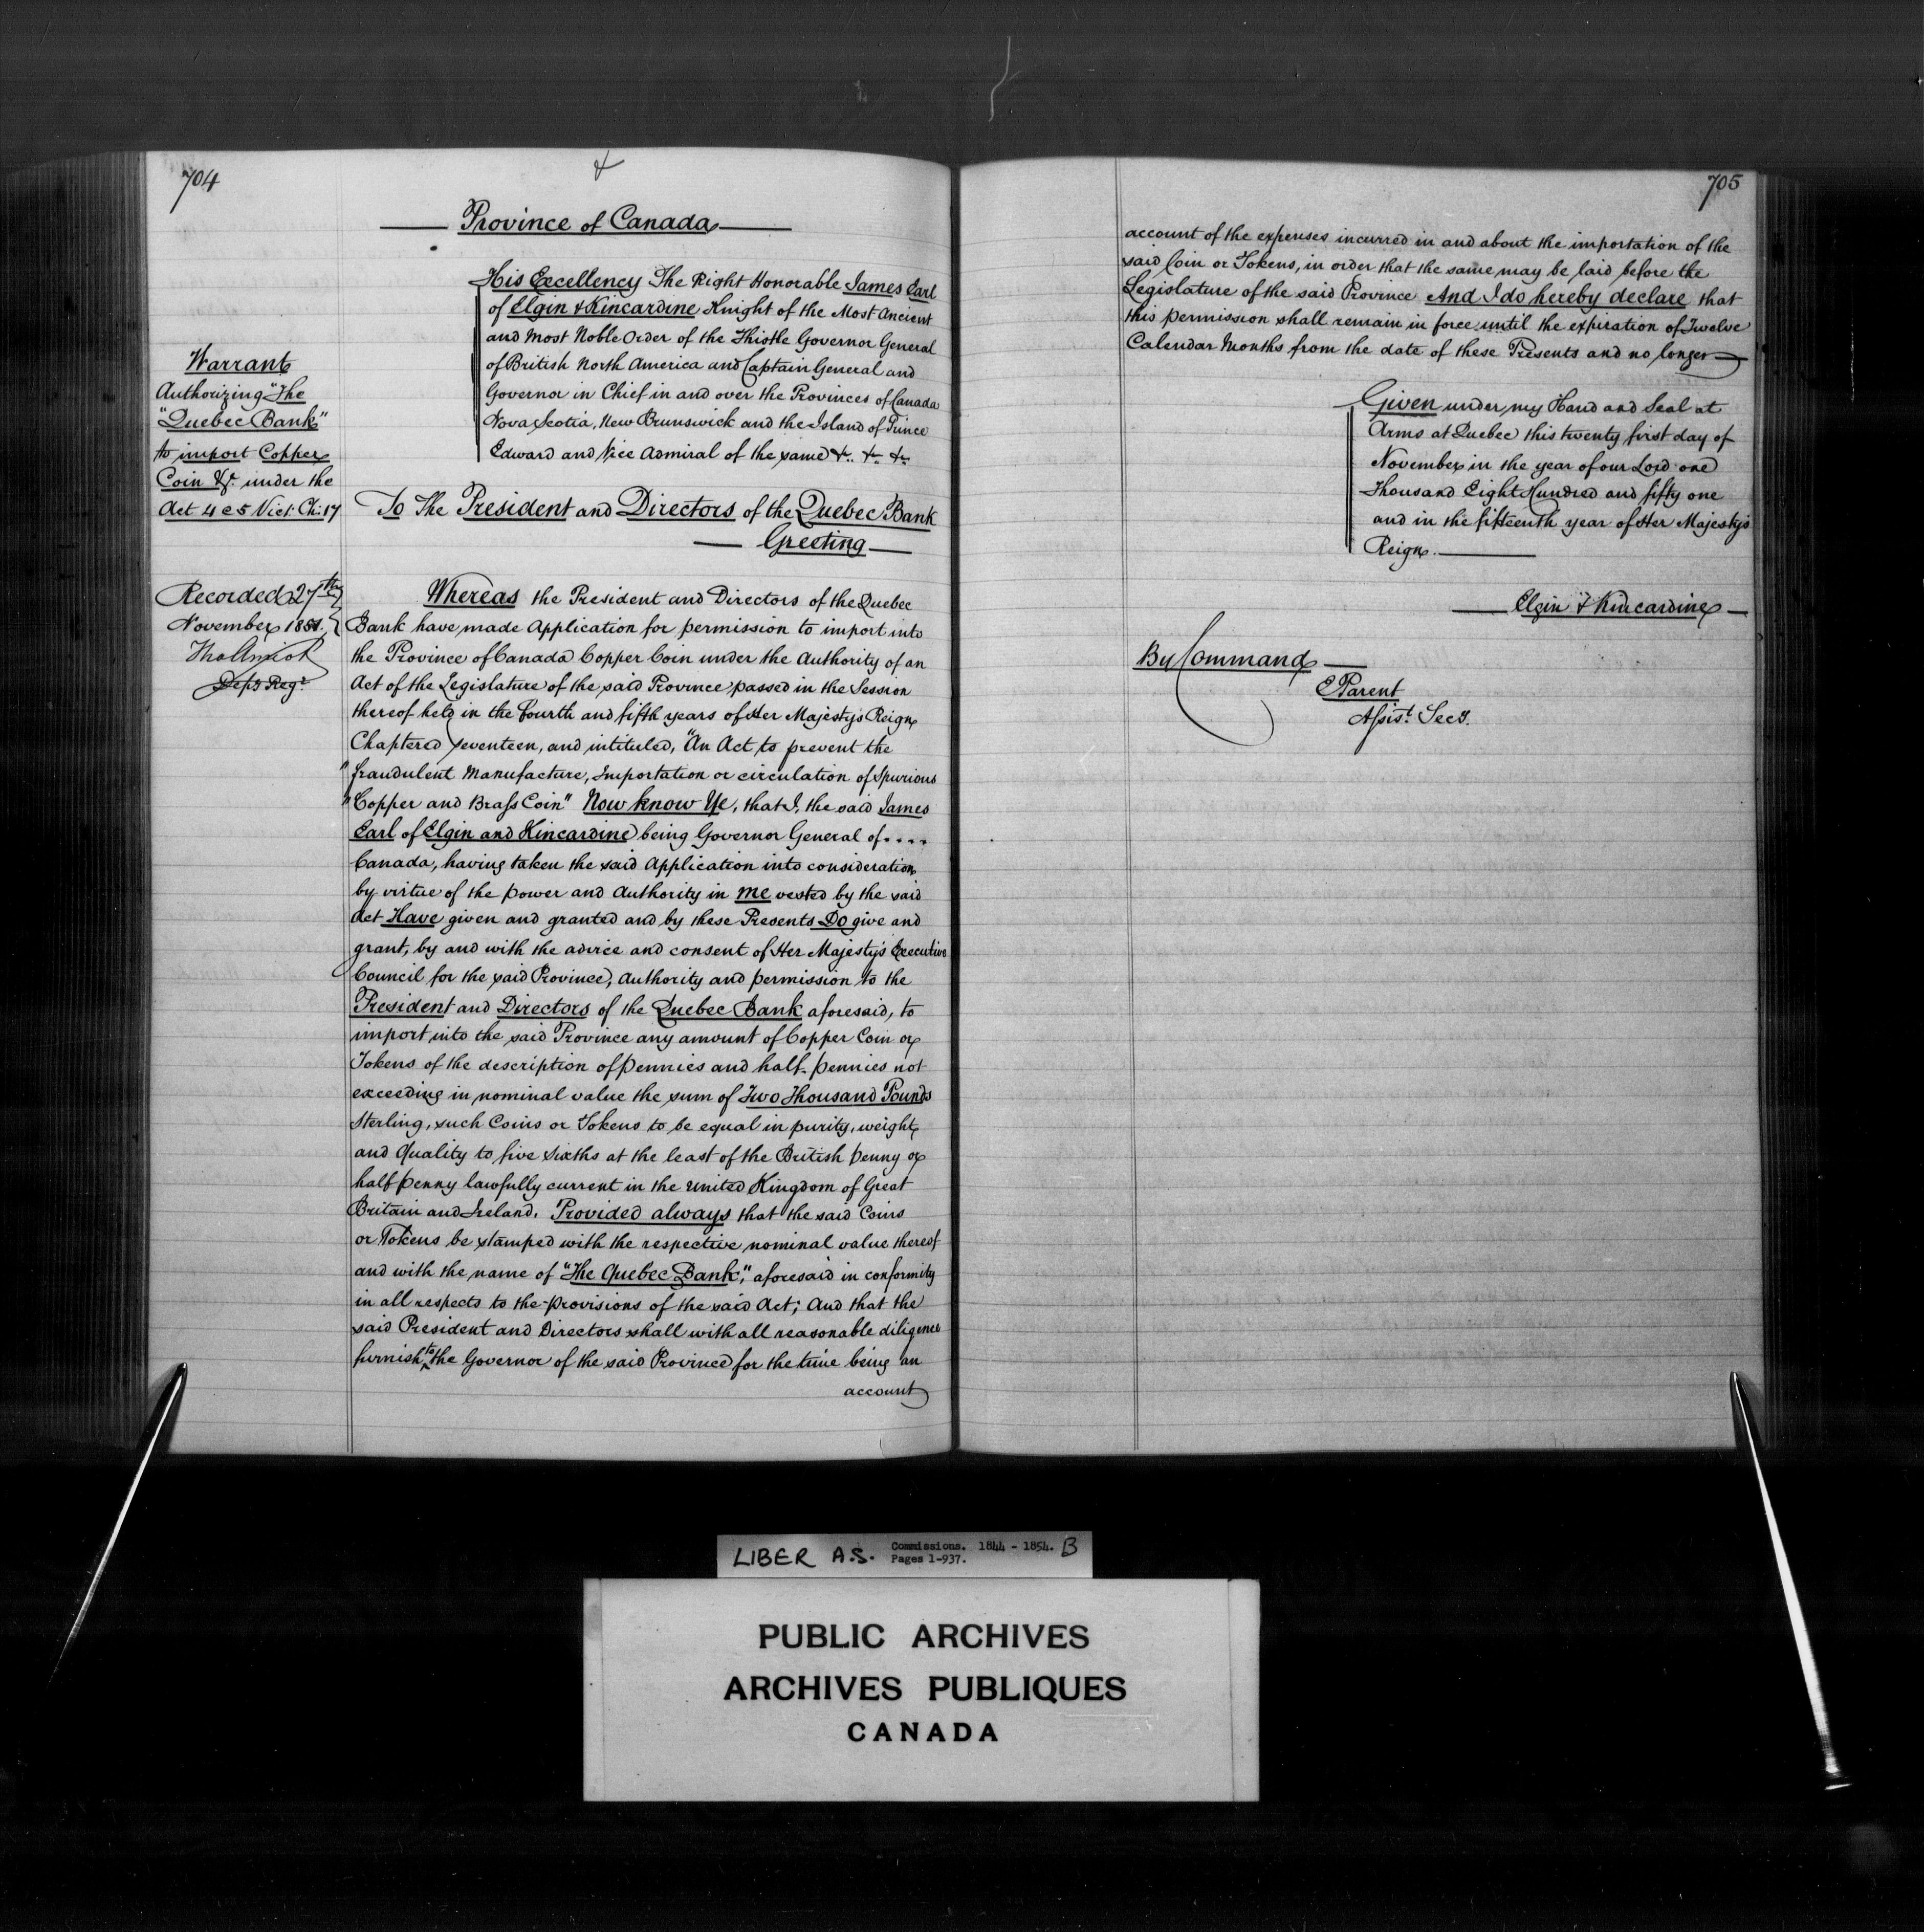 704
Province of Canada
His Excellency The Right Honorable James Earl
of Elgin & Kincardine Knight of the Most Ancient
and most Noble Order of the Thistle Governor General
of British North America and Captain General and
Governor in Chief in and over the Provinces of Canada
Nova Scotia, New Brunswick and the Island of Prince
Edward and Vice Admiral of the same &c. &c. &c.
Warrant
Authorizing "The
"Quebec Bank"
to import Copper
Coin &c. under the
Act 4 & 5 Vict: Ch: 17
To The President and Directors of the Quebec Bank
Greeting
Recorded 27th
November 1851.
Tho Amiot
Depy Regr
Whereas the President and Directors of the Quebec
Bank have made Application for permission to import into
the Province of Canada Copper Coin under the Authority of an
Act of the Legislature of the said Province passed in the Session
thereof held in the fourth and fifth years of Her Majesty's Reign
Chaptered seventeen, and intituled, "An Act to prevent the
"fraudulent Manufacture, Importation or circulation of Spurious
"Copper and Brass Coin" Now know Ye, that I, the said James
Earl of Elgin and Kincardine being Governor General of....
Canada, having taken the said Application into consideration
by virtue of the power and Authority in me vested by the said
Act Have given and granted and by these Presents Do give and
grant, by and with the advice and consent of Her Majesty's Executive
Council for the said Province, Authority and permission to the
President and Directors of the Quebec Bank aforesaid, to
import into the said Province any amount of Copper Coin or
Tokens of the description of pennies and half-pennies not
exceeding in nominal value the sum of Two Thousand Pounds
Sterling, such Coins or Tokens to be equal in purity, weight,
and Quality to five sixths at the least of the British penny or
half penny lawfully current in the United Kingdom of Great
Britain and Ireland. Provided always that the said Coins
or Tokens be stamped with the respective nominal value thereof
and with the name of "The Quebec Bank," aforesaid in conformity
in all respects to the provisions of the said Act; And that the
said President and Directors shall with all reasonable diligence
furnish to the Governor of the said Province for the time being an
account
705
account of the expenses incurred in and about the importation of the
said Coin or Tokens, in order that the same may be laid before the
Legislature of the said Province And I do hereby declare that
this permission shall remain in force until the expiration of Twelve
Calendar Months from the date of these Presents and no longer
Given under my Hand and Seal at
Arms at Quebec this twenty first day of
November in the year of our Lord one
Thousand Eight Hundred and fifty one
and in the fifteenth year of Her Majesty's
Reign.
Elgin & Kincardine
By Command
E Parent
Assist. Secy.
LIBER A.S. Commissions. 1844 - 1854. B
Pages 1-937.
PUBLIC ARCHIVES
ARCHIVES PUBLIQUES
CANADA